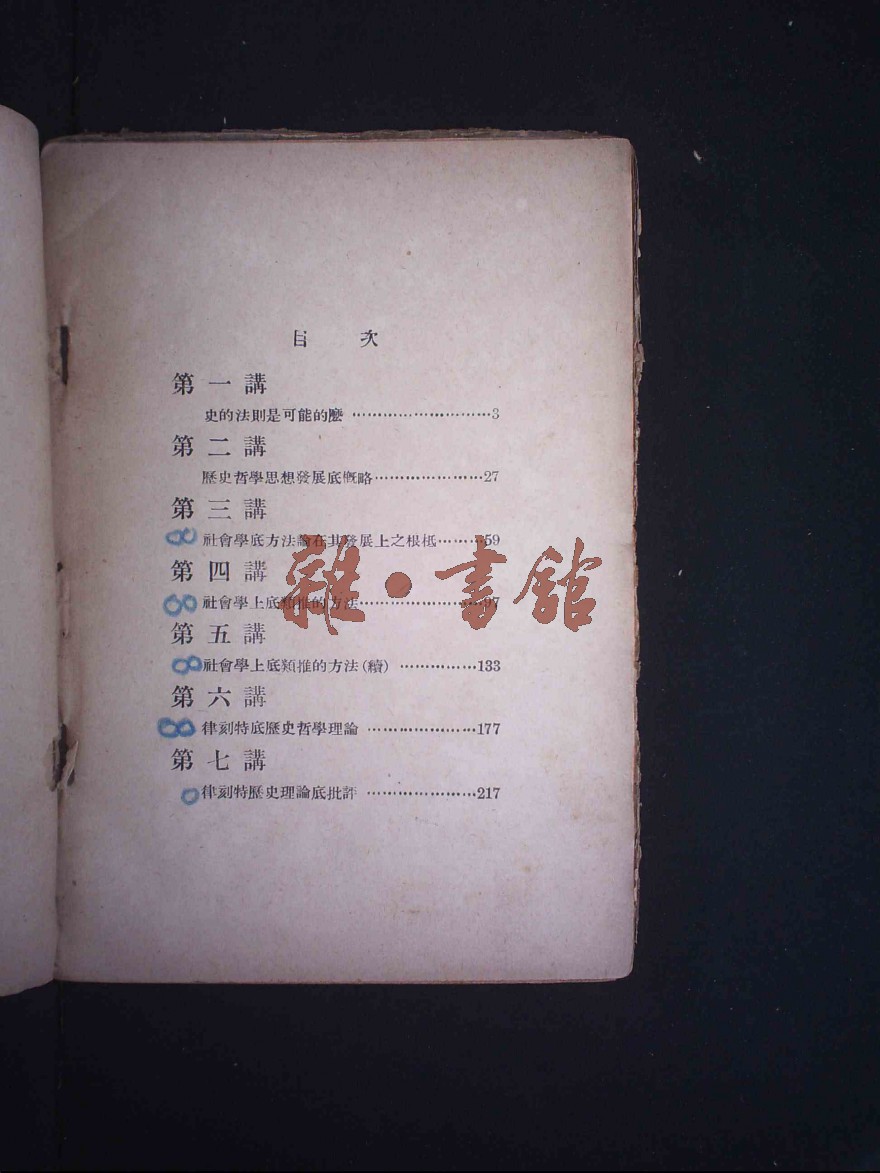 目 次
第一講
史的法則是可能的麽 ………………………3
第二講
歷史哲學思想發展底概略………………27
第三講
社會學底方法論在其發展上之根柢………59
第四講
社會學上底類推的方法……………………97
第五講
社會學上底類推的方法(續) ……………133
第六講
律刻特底歷史哲學理論 …………………177
第七講
律刻特歷史理論底批評 …………………217
雜·書館